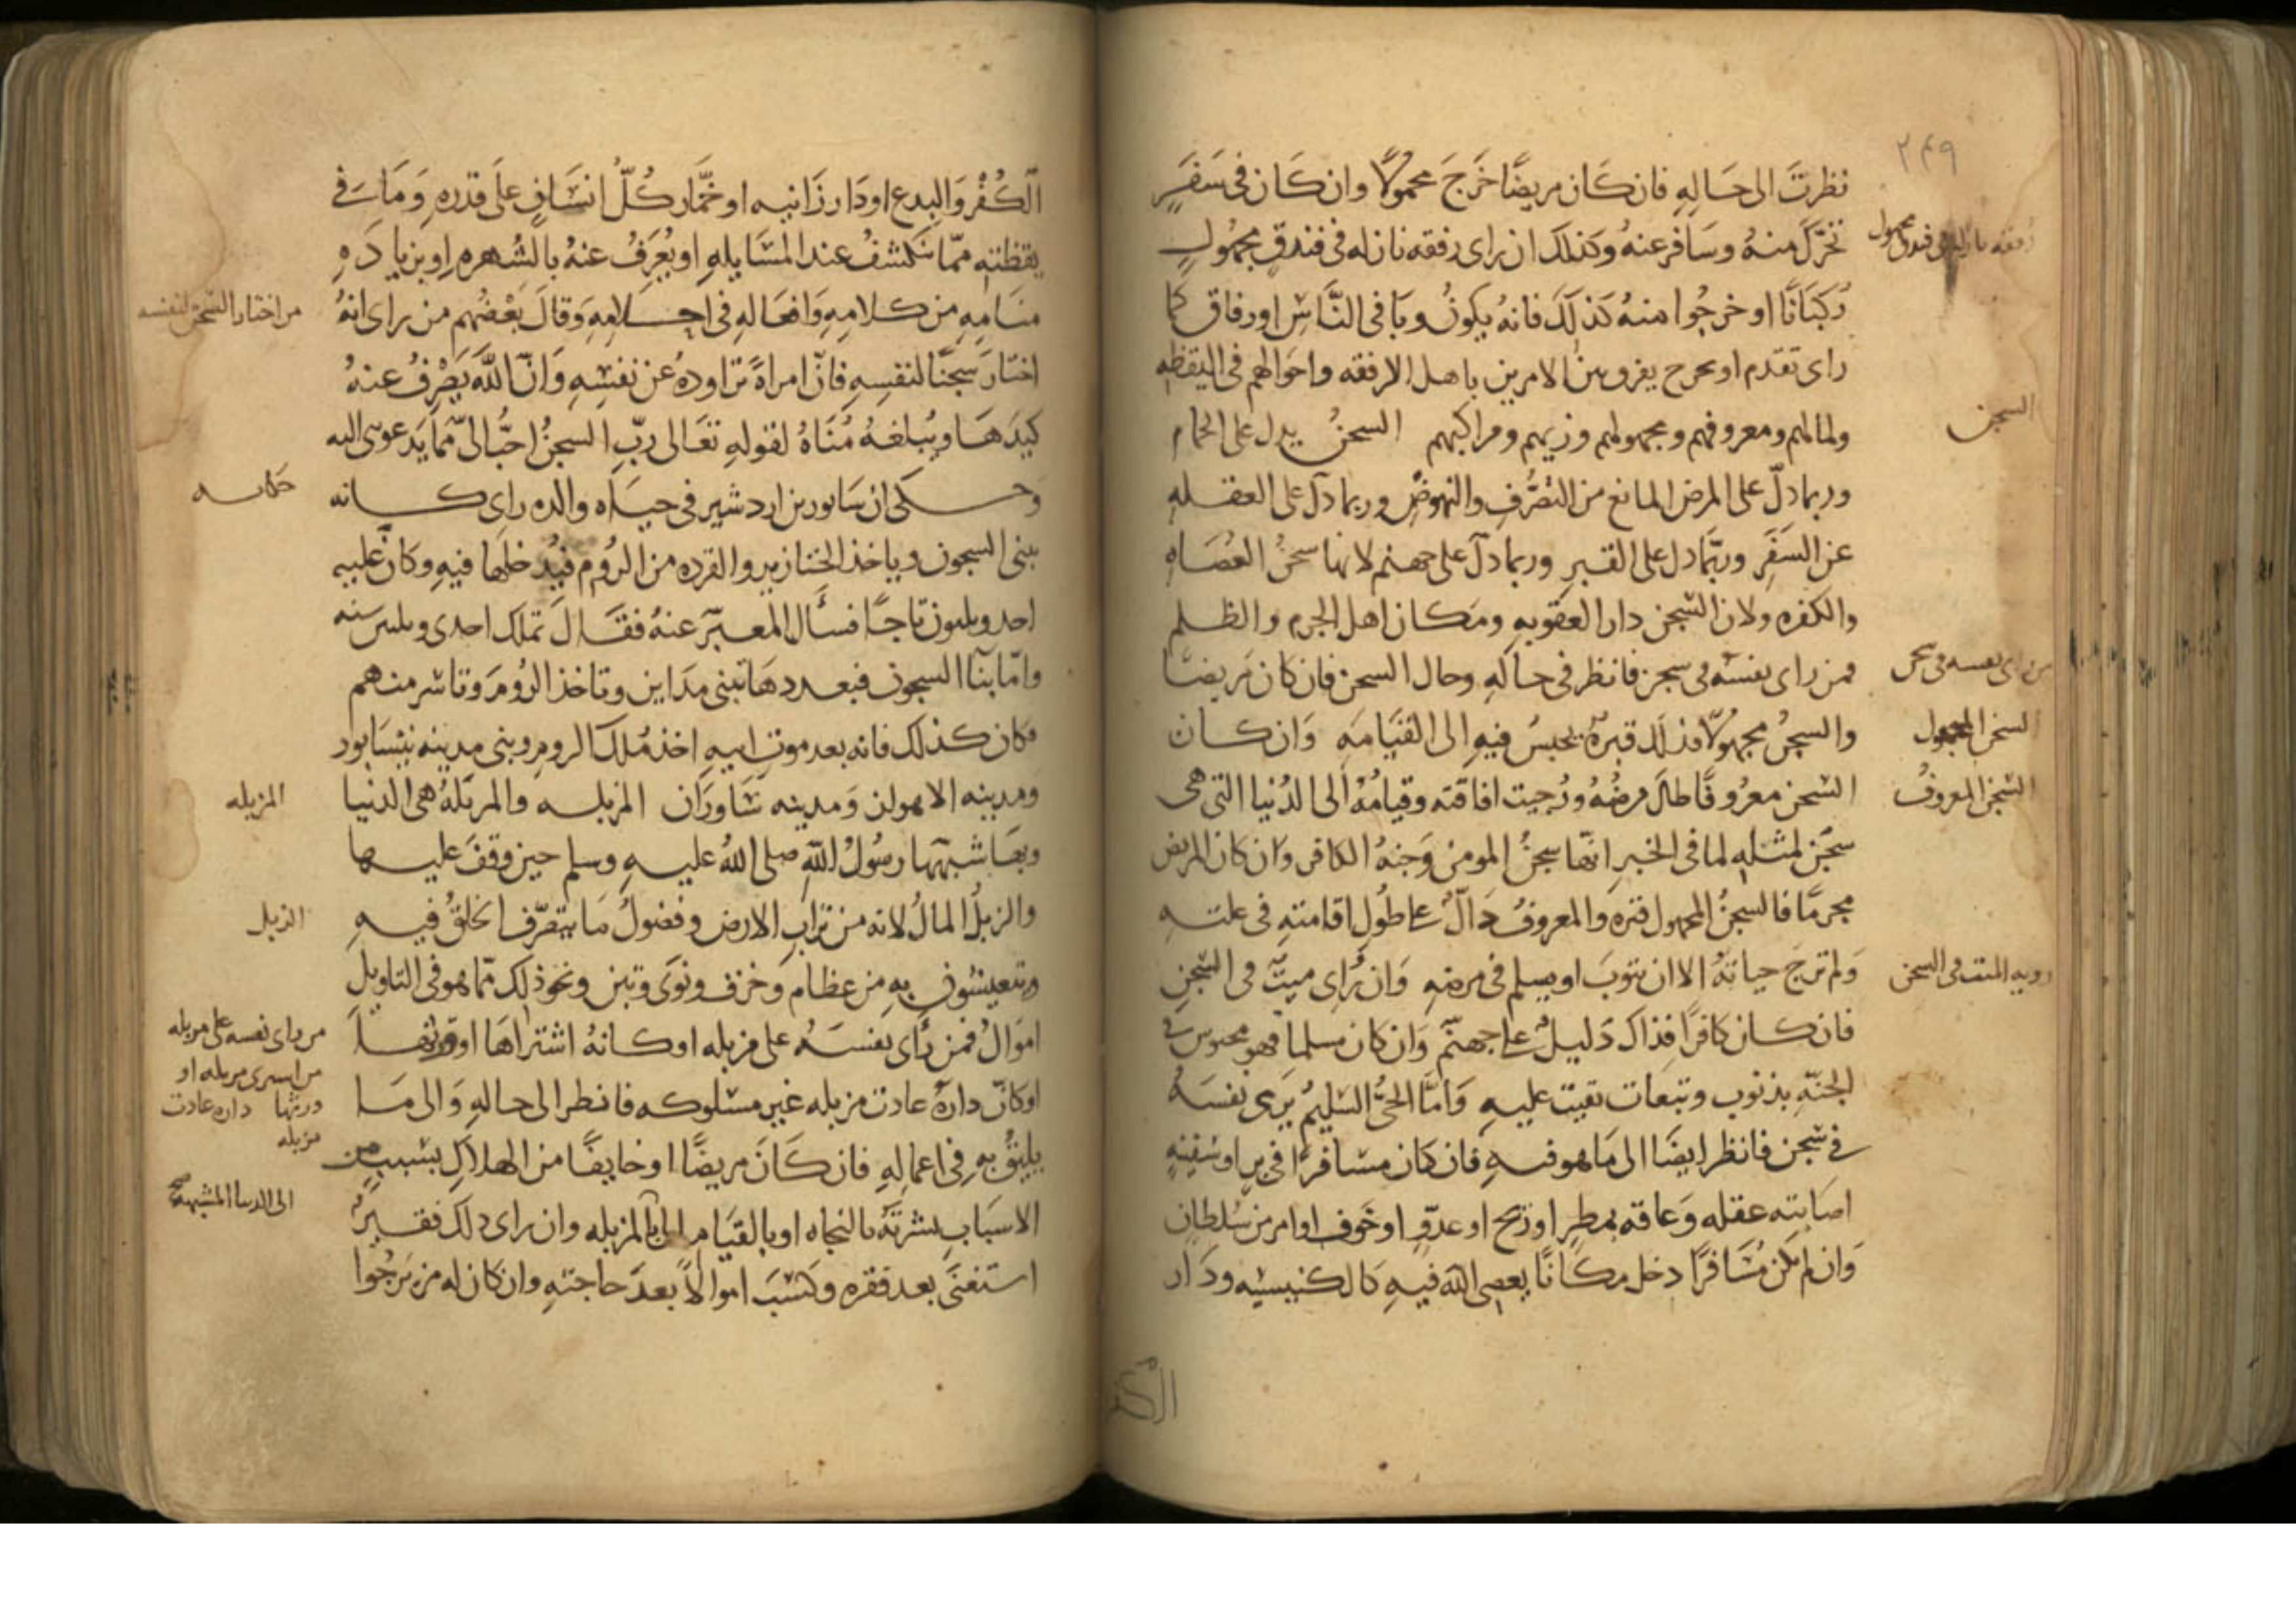 ٢٤٩
نظرت الى حَاله فان كَان مريضًا خَرجَ محمولًا وان كَان فى سَفَرٍ
تحرّك منهُ وسَافر عنهُ وكذلك ان راى رفقه نازله فى فندقٍ مجهُولٍ
رُكبَانًا او خرجُوا منهُ كذلك فانهُ يكونُ وبَا فى النَّاسِ او رفاق كما
راى تقدم او تخرج يفرق بين الامرين باهل الرفقه واحوالهم فى اليقظه
ولمالهم ومعروفهم ومجهولهم وزيهم ومراكبهم السجنُ يدل على الحمام
وربما دلّ على المرض المانع من التصُّرفِ والنهوضِ وربما دلّ على العقله
عن السَفَر وربّما دل على القبرِ وربما دلّ على جهنم لانها سجنُ العُصَاه
والكفره ولان السّجن دار العقوبهِ ومَكان اهل الجرم والظلم
فمن راى نفسَه فى سجنٍ فانظر فى حالهِ وحال السجن فان كان مَريضًا
والسجنُ مجهولًا فذلك قبرهُ يحبسُ فيهِ الى القيَامَهِ وَان كان
السّجن معرُوفًا طالَ مرضُهُ ورُجيت افاقته وقيامُهُ الى الدُنيا التى هى
سجَن لمثله لما فى الخبرِ انها سجنُ المومن وَجنهُ الكافر وَان كان المريض
مجرمًا فالسجنُ المجهول قبره والمعروفُ دَالٌّ على طُولِ اقامتهِ فى علتهِ
وَلم تُرجَ حياتهُ الا ان يتوبَ او يسلم فى مرضهِ وَان رُاى ميتٌ فى السّجنِ
فان كان كافرًا فذاك دَليلٌ على جهنّم وَان كان مسلمًا فهو محبوس فى
الجنّهِ بذنوب وتبعات بقيت عليهِ وَامَّا الحىُّ السّليمُ يَرى نفسَهُ
فى سّجن فانظر ايضًا الى مَا هو فيهِ فان كان مسَافرًا فى برٍ او سَفينهٍ
اصَابته عقله وَعاقه بمطرٍ او ريح او عدوٍّ او خَوف او امر من سُلطانٍ
وَان لم يكن مُسَافرًا دخل مكَانًا يعصى الله فيهِ كَالكنيسَيه ودَار
رفقه نازله فى فندق مجهول
السجن
من راى نفسه فى سجن
السجن المجهول
السّجن المعروفُ
رويه الميت فى السجن
الكُفر
الكُفْر وَالبدع او دَار زَانيه او خمَّار كُلّ انسَانٍ على قدرهِ وَمَا فى
يقظتهِ ممّا ينكشفُ عند المسَايلهِ او يُعرَفُ عنهُ بالشُهره او بزيادَهِ
منَامهِ من كلامهِ وَافعَالهِ فى احلامهِ وَقالَ بَعْضُهم من راى انهُ
اختَارَ سَجنًا لنفسِهِ فانّ امراةً تراودهُ عَن نفسِهِ وَانّ اللّهَ يَصْرْفُ عنهُ
كيدَهَا ويُبلغهُ مُنَاهُ لقولهِ تعَالى ربِّ السجنُ احبُّ الىّ ممّا يَدعوننى اليه
وحكى ان سَابور بن اردشير فى حيَاه والده راى كانه
يبنى السجون وياخذ الخنازير والقرده من الرُوم فيُدخلها فيهِ وكانّ عليه
احد وثلثون تاجًا فسأل المعبّر عنهُ فقال تملك احدى وثلثين سنه
وامّا بنا السجون فبعددهَا تبنى مدَاين وتاخذ الرُومَ وتاسر منهم
فكان كذلك فانه بعد موتِ ابيهِ اخذ مُلك الروم وبنى مدينه نيسَابور
ومدينه الاهواز وَمدينه سَاورَان المزبله والمزبَلهُ هى الدنيا
وبهَا شبّهها رسُولُ اللّهِ صلى اللهُ عليهِ وسلم حين وقفَ عليها
والزبلُ المالُ لانه من ترابِ الارض وفضولُ مَا يتصرّف الخلقُ فيهِ
ويتعيشُون بهِ من عظام وَخزف ونوَى وتبن ونحو ذلك ممّا هو فى التاويل
اموَالٌ فمن رَأى نفسَهُ على مزبله او كانهُ اشترَاهَا او ورثها
او كانّ دارَهُ عادت مزبله غير مسْلوكه فانظر الى حالهِ وَالى مَا
يليقُ بهِ فى اعمالِهِ فان كَانَ مريضًا او خايفًا من الهلاكِ بسببٍ من
الاسبَابِ بشرتَهُ بالنجاه او بالقيَام الى المزبله وان راى ذلك فقيرٌ
استغنَى بعد فقره وكسَبَ اموالًا بعدَ حاجتهِ وان كان له من يَرجُوا
من اختار السّجن لنفسه
حكايه
المزبله
الزبل
من راى نفسه على مزبله
من اشترى مزبله او
ورثها داره عادت
مزبله
الى الدنيا المشبهه صح